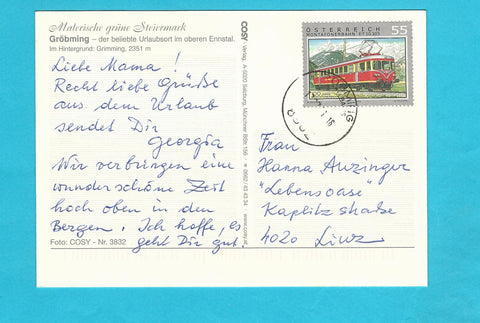 Malerische grüne Steiermark
Gröbming – der beliebte Urlaubsort im oberen Ennstal.
Im Hintergrund: Grimming, 2351 m
Liebe Mama!
Recht liebe Grüße
aus dem Urlaub
sendet Dir
Georgia
Wir verbringen eine
wunderschöne Zeit
hoch oben in den
Bergen. Ich hoffe, es
geht Dir gut.
Foto: COSY - Nr. 3832
COSY Verlag, A-5020 Salzburg, Münchner BStr 156 • 0662/43 43 34 www.cosy.at
ÖSTERREICH 55
MONTAFONERBAHN ET 10.103
Frau
Hanna Anzinger
"Lebensoase"
Kaplitzstraße
4020 Linz